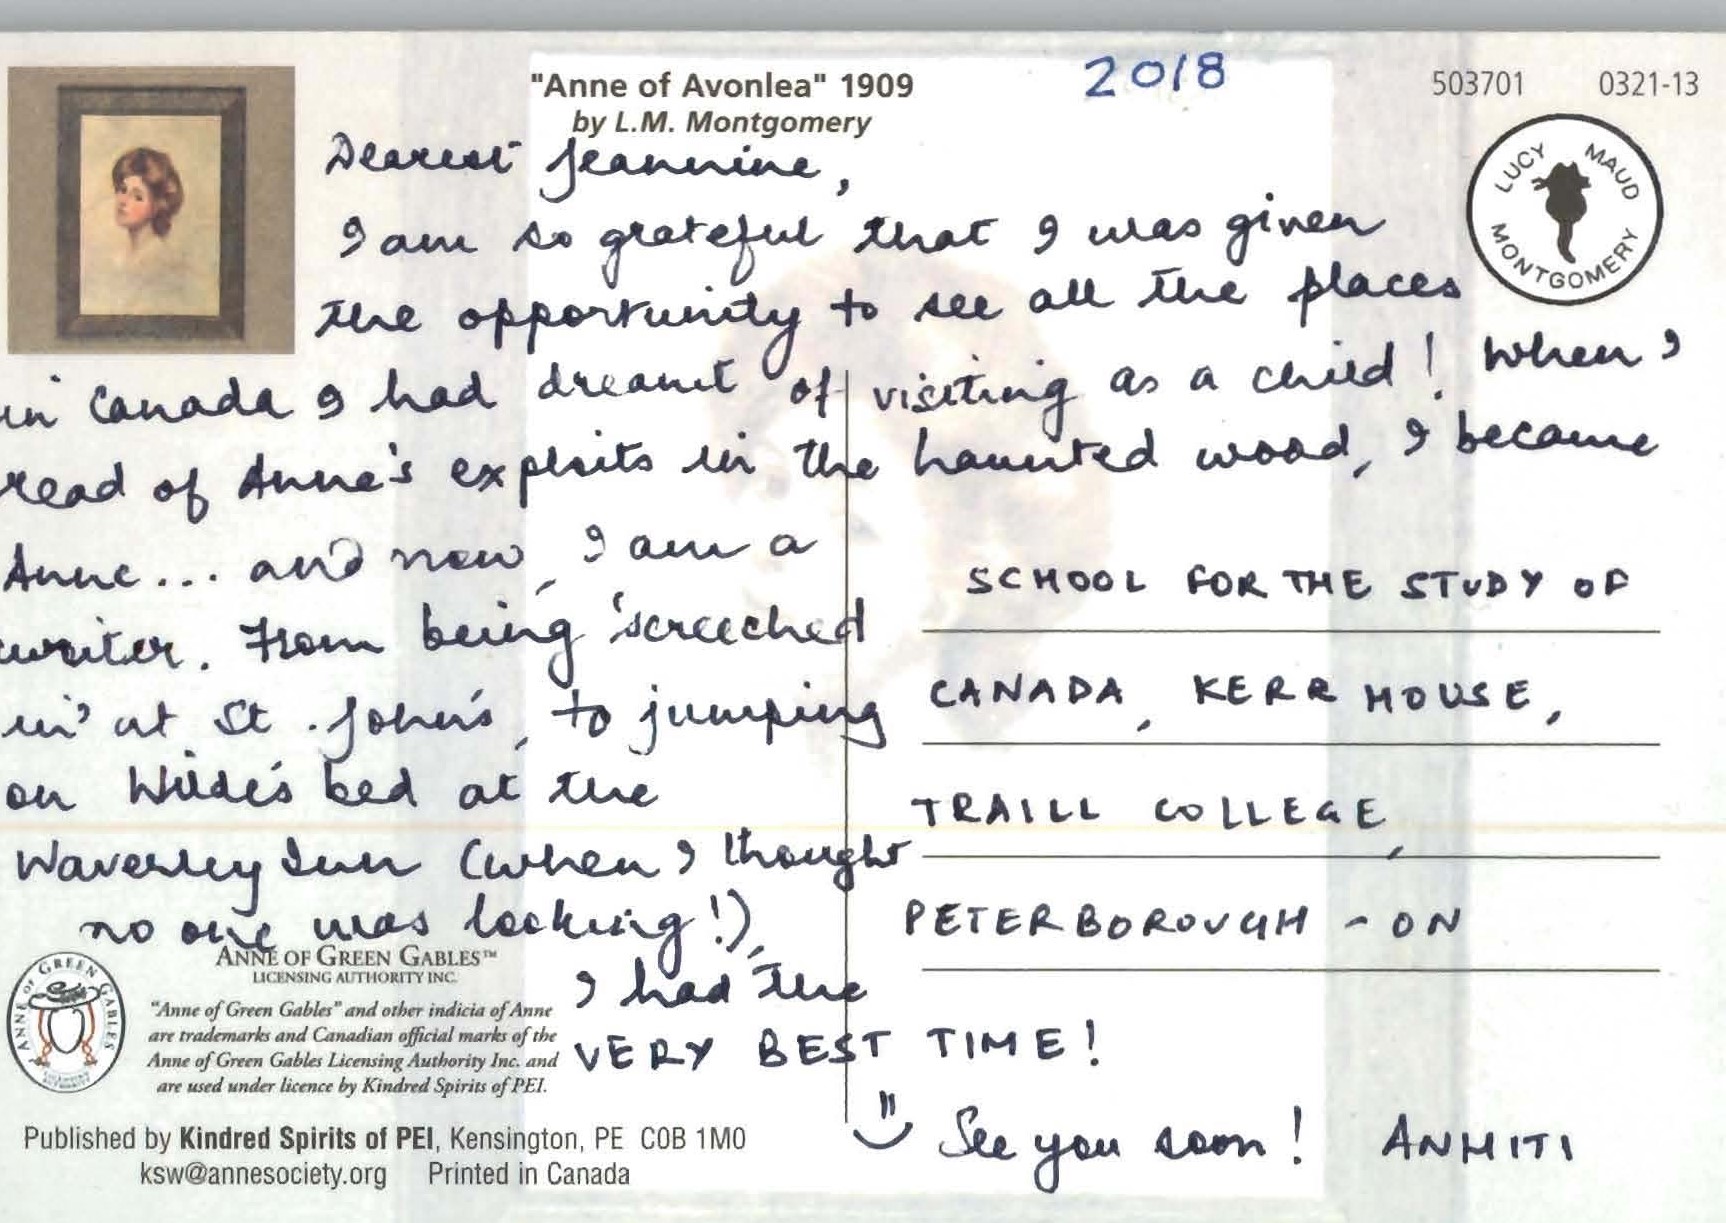 "Anne of Avonlea" 1909
by L.M. Montgomery
2018
503701 0321-13
LUCY MAUD MONTGOMERY
Dearest Jeannine,
I am so grateful that I was given
the opportunity to see all the places
in Canada I had dreamt of visiting as a child! When I
read of Anne's exploits in the haunted wood, I became
Anne... and now, I am a
writer. From being 'screeched
in' at St. John's, to jumping
on Wilde's bed at the
Waverley Inn (when I thought
no one was looking!),
I had the
VERY BEST TIME!
See you soon! ANHITI
SCHOOL FOR THE STUDY OF
CANADA, KERR HOUSE,
TRAILL COLLEGE,
PETERBOROUGH - ON
ANNE OF GREEN GABLES
ANNE OF GREEN GABLES™
LICENSING AUTHORITY INC.
"Anne of Green Gables" and other indicia of Anne
are trademarks and Canadian official marks of the
Anne of Green Gables Licensing Authority Inc. and
are used under licence by Kindred Spirits of PEI.
Published by Kindred Spirits of PEI, Kensington, PE C0B 1M0
ksw@annesociety.org Printed in Canada